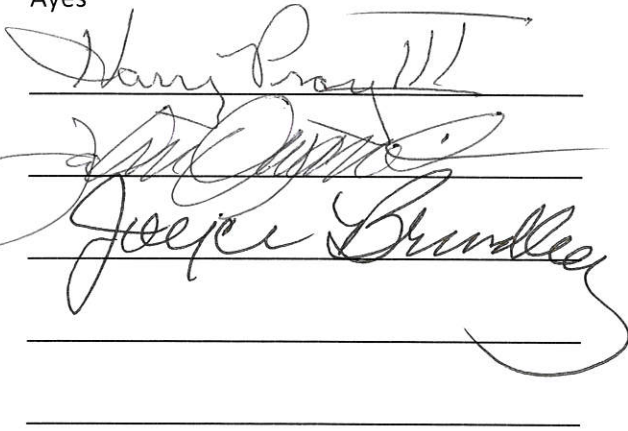 Ayes
Harry Pray III
Joyce Brundley